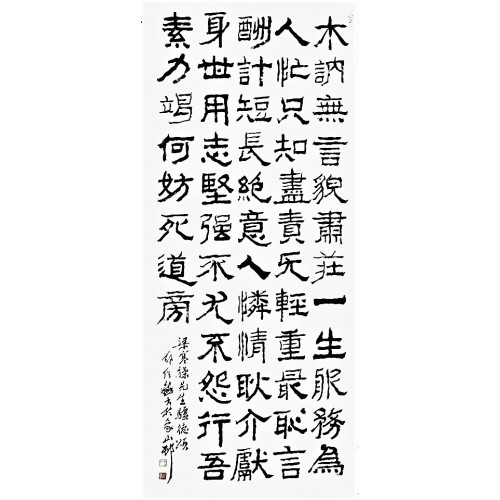 木訥無言貌肅莊一生服務為
人忙只知盡責无輕重最恥言
酬計短長絕意人憐情耿介獻
身世用志堅强不尤不怨行吾
素力竭何妨死道旁
梁寒操先生驢德頌